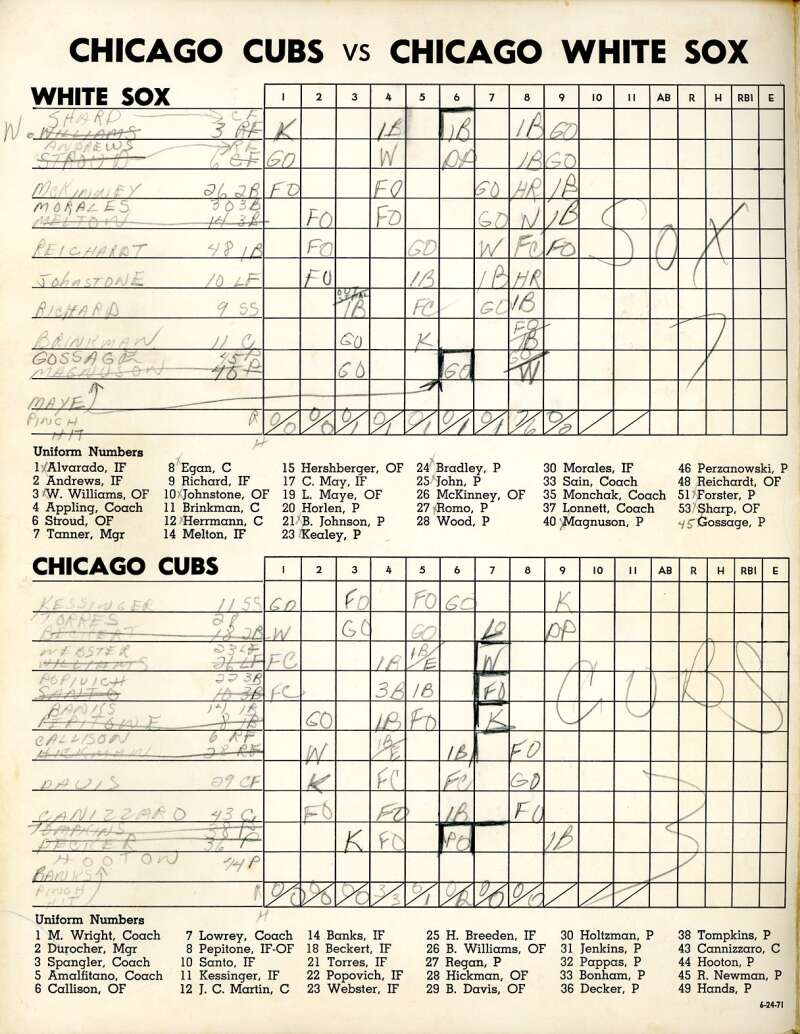 CHICAGO CUBS VS CHICAGO WHITE SOX
WHITE SOX 1 2 3 4 5 6 7 8 9 10 11 AB R H RBI E
SHARP CF
W. WILLIAMS 3 RF K 1B 1B 1B GO
ANDREWS
STROUD 6 CF GO W DP 1B GO
MCKINNEY 26 2B FO FO GO HR 1B
MORALES 30 3B
MELTON 14 3B FO FO GO W 1B
SOX
REICHARDT 48 1B FO GO W FC FO
JOHNSTONE 10 LF FO 1B 1B HR
RICHARD 9 SS 1B FC GO 1B
BRINKMAN 11 C GO K FO 1B
7
GOSSAGE 45 P
MAGNUSON 40 P GO GO GO W
MAYE
PINCH HIT R 0/0 0/0 0/1 0/1 0/1 0/1 0/1 7/6 0/2
H
Uniform Numbers
1 Alvarado, IF 8 Egan, C 15 Hershberger, OF 24 Bradley, P 30 Morales, IF 46 Perzanowski, P
2 Andrews, IF 9 Richard, IF 17 C. May, IF 25 John, P 33 Sain, Coach 48 Reichardt, OF
3 W. Williams, OF 10 Johnstone, OF 19 L. Maye, OF 26 McKinney, OF 35 Monchak, Coach 51 Forster, P
4 Appling, Coach 11 Brinkman, C 20 Horlen, P 27 Romo, P 37 Lonnett, Coach 53 Sharp, OF
6 Stroud, OF 12 Herrmann, C 21 B. Johnson, P 28 Wood, P 40 Magnuson, P 45 Gossage, P
7 Tanner, Mgr 14 Melton, IF 23 Kealey, P
CHICAGO CUBS 1 2 3 4 5 6 7 8 9 10 11 AB R H RBI E
KESSINGER 11 SS GO FO FO GO K
TORRES 21
BECKERT 18 2B W GO GO DP
WEBSTER 23 LF
WILLIAMS 26 LF FC 1B 1B/E W
POPIVICH 22 3B
SANTO 10 3B FC 3B 1B FO
CUBS
BANKS 14 1B
PEPITONE 8 1B GO 1B FO K
CALLISON 6 RF
HICKMAN 28 RF W 1B/E 1B FO
DAVIS 29 CF K FC FC GO
3
CANIZZARO 43 C FO FO 1B FO
TOMPKINS 38 P
DECKER 36 P K FO PO 1B
HOOTON 44 P
BANKS
PINCH HIT R 0/0 0/0 0/0 3/3 0/1 0/2 0/0 0/0
H
Uniform Numbers
1 M. Wright, Coach 7 Lowrey, Coach 14 Banks, IF 25 H. Breeden, IF 30 Holtzman, P 38 Tompkins, P
2 Durocher, Mgr 8 Pepitone, IF-OF 18 Beckert, IF 26 B. Williams, OF 31 Jenkins, P 43 Cannizzaro, C
3 Spangler, Coach 10 Santo, IF 21 Torres, IF 27 Regan, P 32 Pappas, P 44 Hooton, P
5 Amalfitano, Coach 11 Kessinger, IF 22 Popovich, IF 28 Hickman, OF 33 Bonham, P 45 R. Newman, P
6 Callison, OF 12 J. C. Martin, C 23 Webster, IF 29 B. Davis, OF 36 Decker, P 49 Hands, P
6-24-71